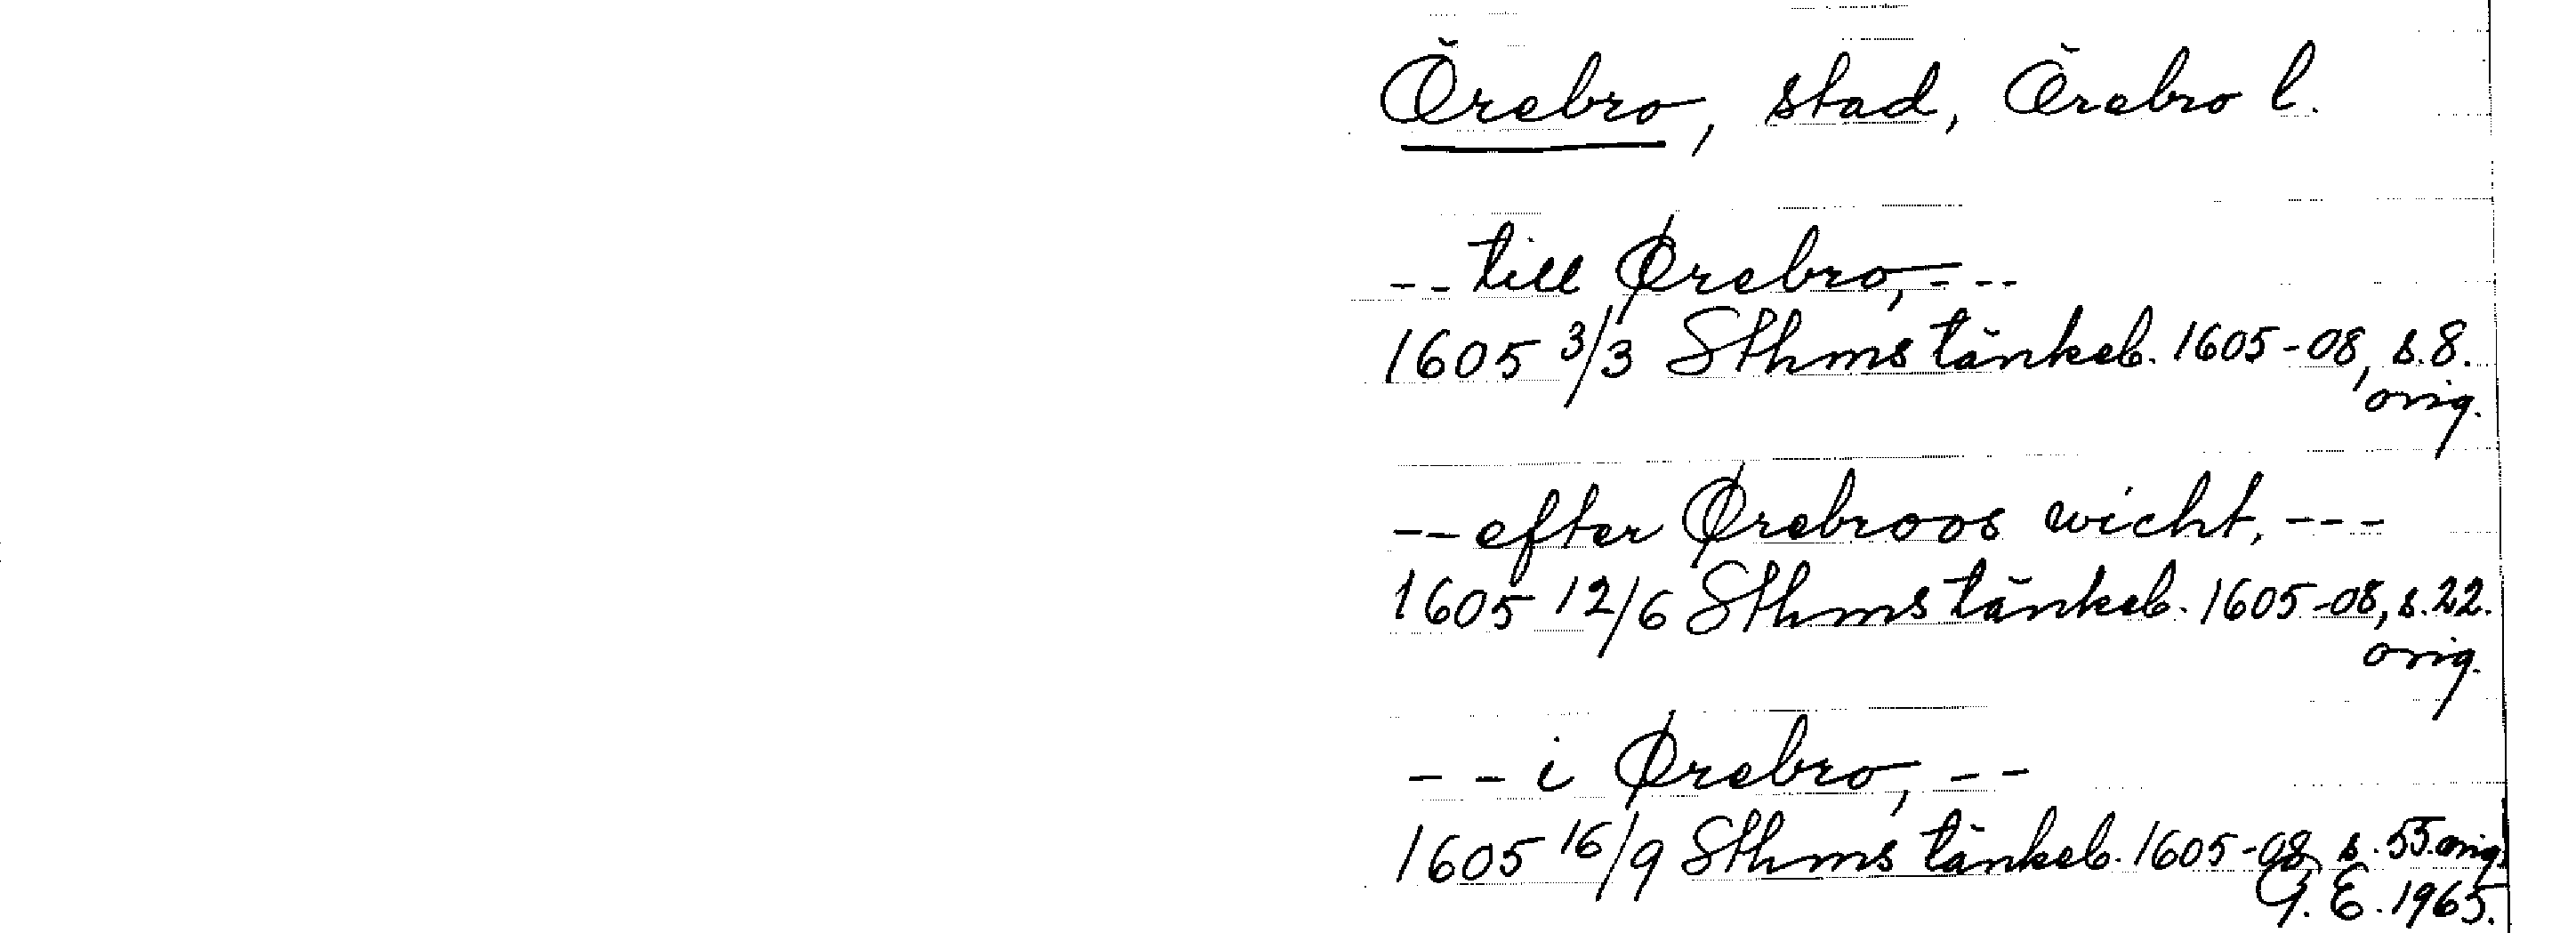 Örebro, stad, Örebro l.
-- till Ørebro, ---
1605 3/3 Sthms tänkeb. 1605-08, s.8.
orig.
-- efter Ørebroos wicht, ---
1605 12/6 Sthms tänkeb. 1605-08, s.22.
orig.
-- i Ørebro, --
1605 16/9 Sthms tänkeb. 1605-08, s.55.orig.
G.E. 1965.